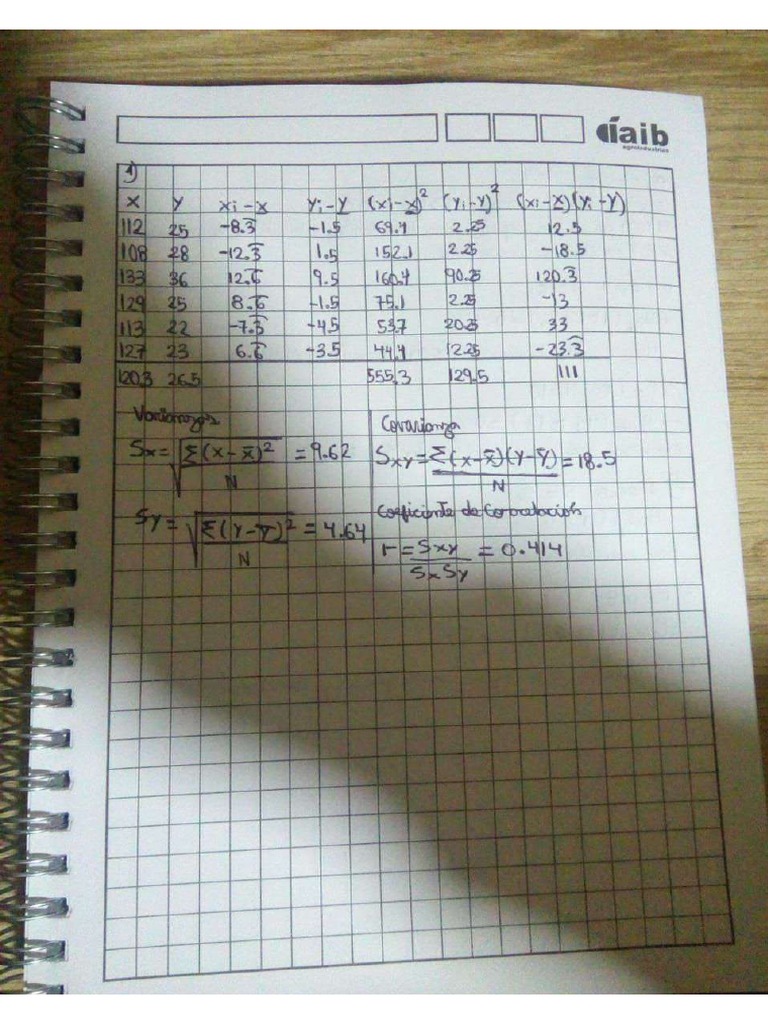 aib
agroindustrias
1)
x y xi - x yi - y (xi - x)² (yi - y)² (xi - x)(yi - y)
112 25 -8.3 -1.5 69.4 2.25 12.5
108 28 -12.3 1.5 152.1 2.25 -18.5
133 36 12.6 9.5 160.4 90.25 120.3
129 25 8.6 -1.5 75.1 2.25 -13
113 22 -7.3 -4.5 53.7 20.25 33
127 23 6.6 -3.5 44.4 12.25 -23.3
120.3 26.5 555.3 129.5 111
Varianzas
Sx = √Σ(x - x̄)²/N = 9.62
Sy = √Σ(y - ȳ)²/N = 4.64
Covarianza
Sxy = Σ(x - x̄)(y - ȳ)/N = 18.5
Coeficiente de Correlación
r = Sxy/SxSy = 0.414